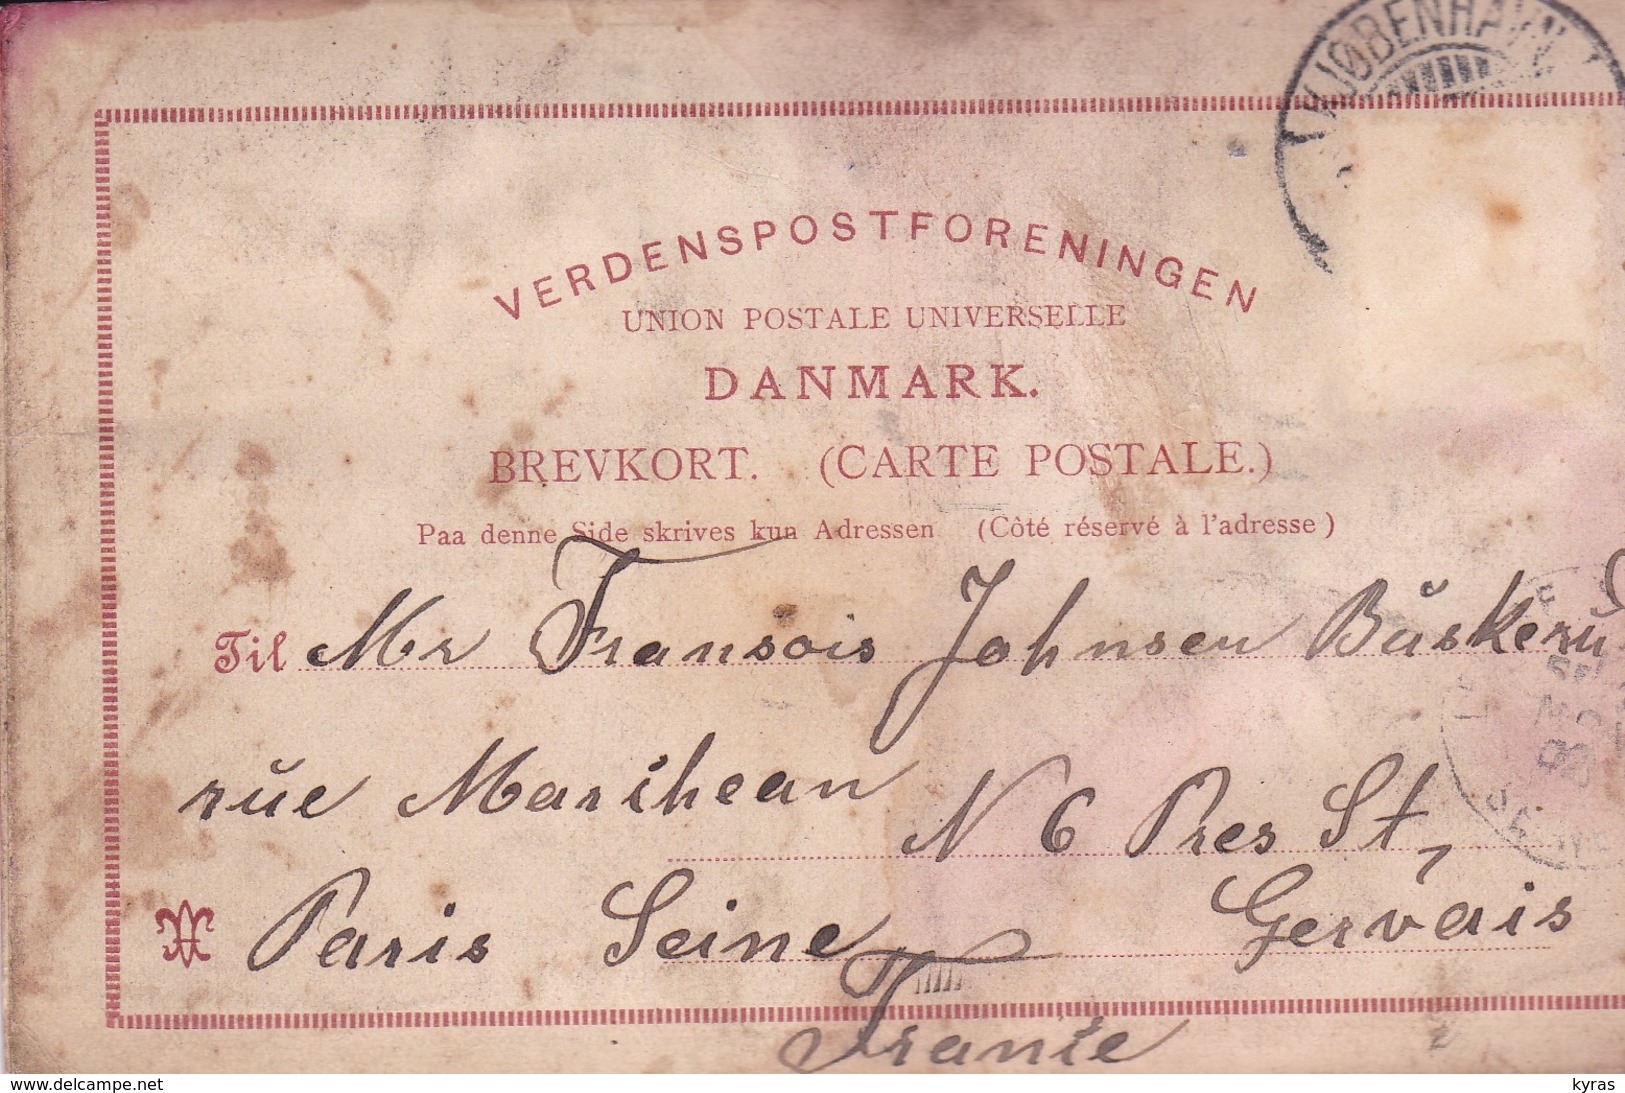 KJØBENHAVN
VERDENSPOSTFORENINGEN
UNION POSTALE UNIVERSELLE
DANMARK.
BREVKORT. (CARTE POSTALE.)
Paa denne Side skrives kun Adressen (Côté réservé à l'adresse)
Til Mr Fransois Johnsen Bŭskerŭ
rŭe Marihean N 6 Pres St,
Paris Seine Gervais
Franĉe
www.delcampe.net
kyras